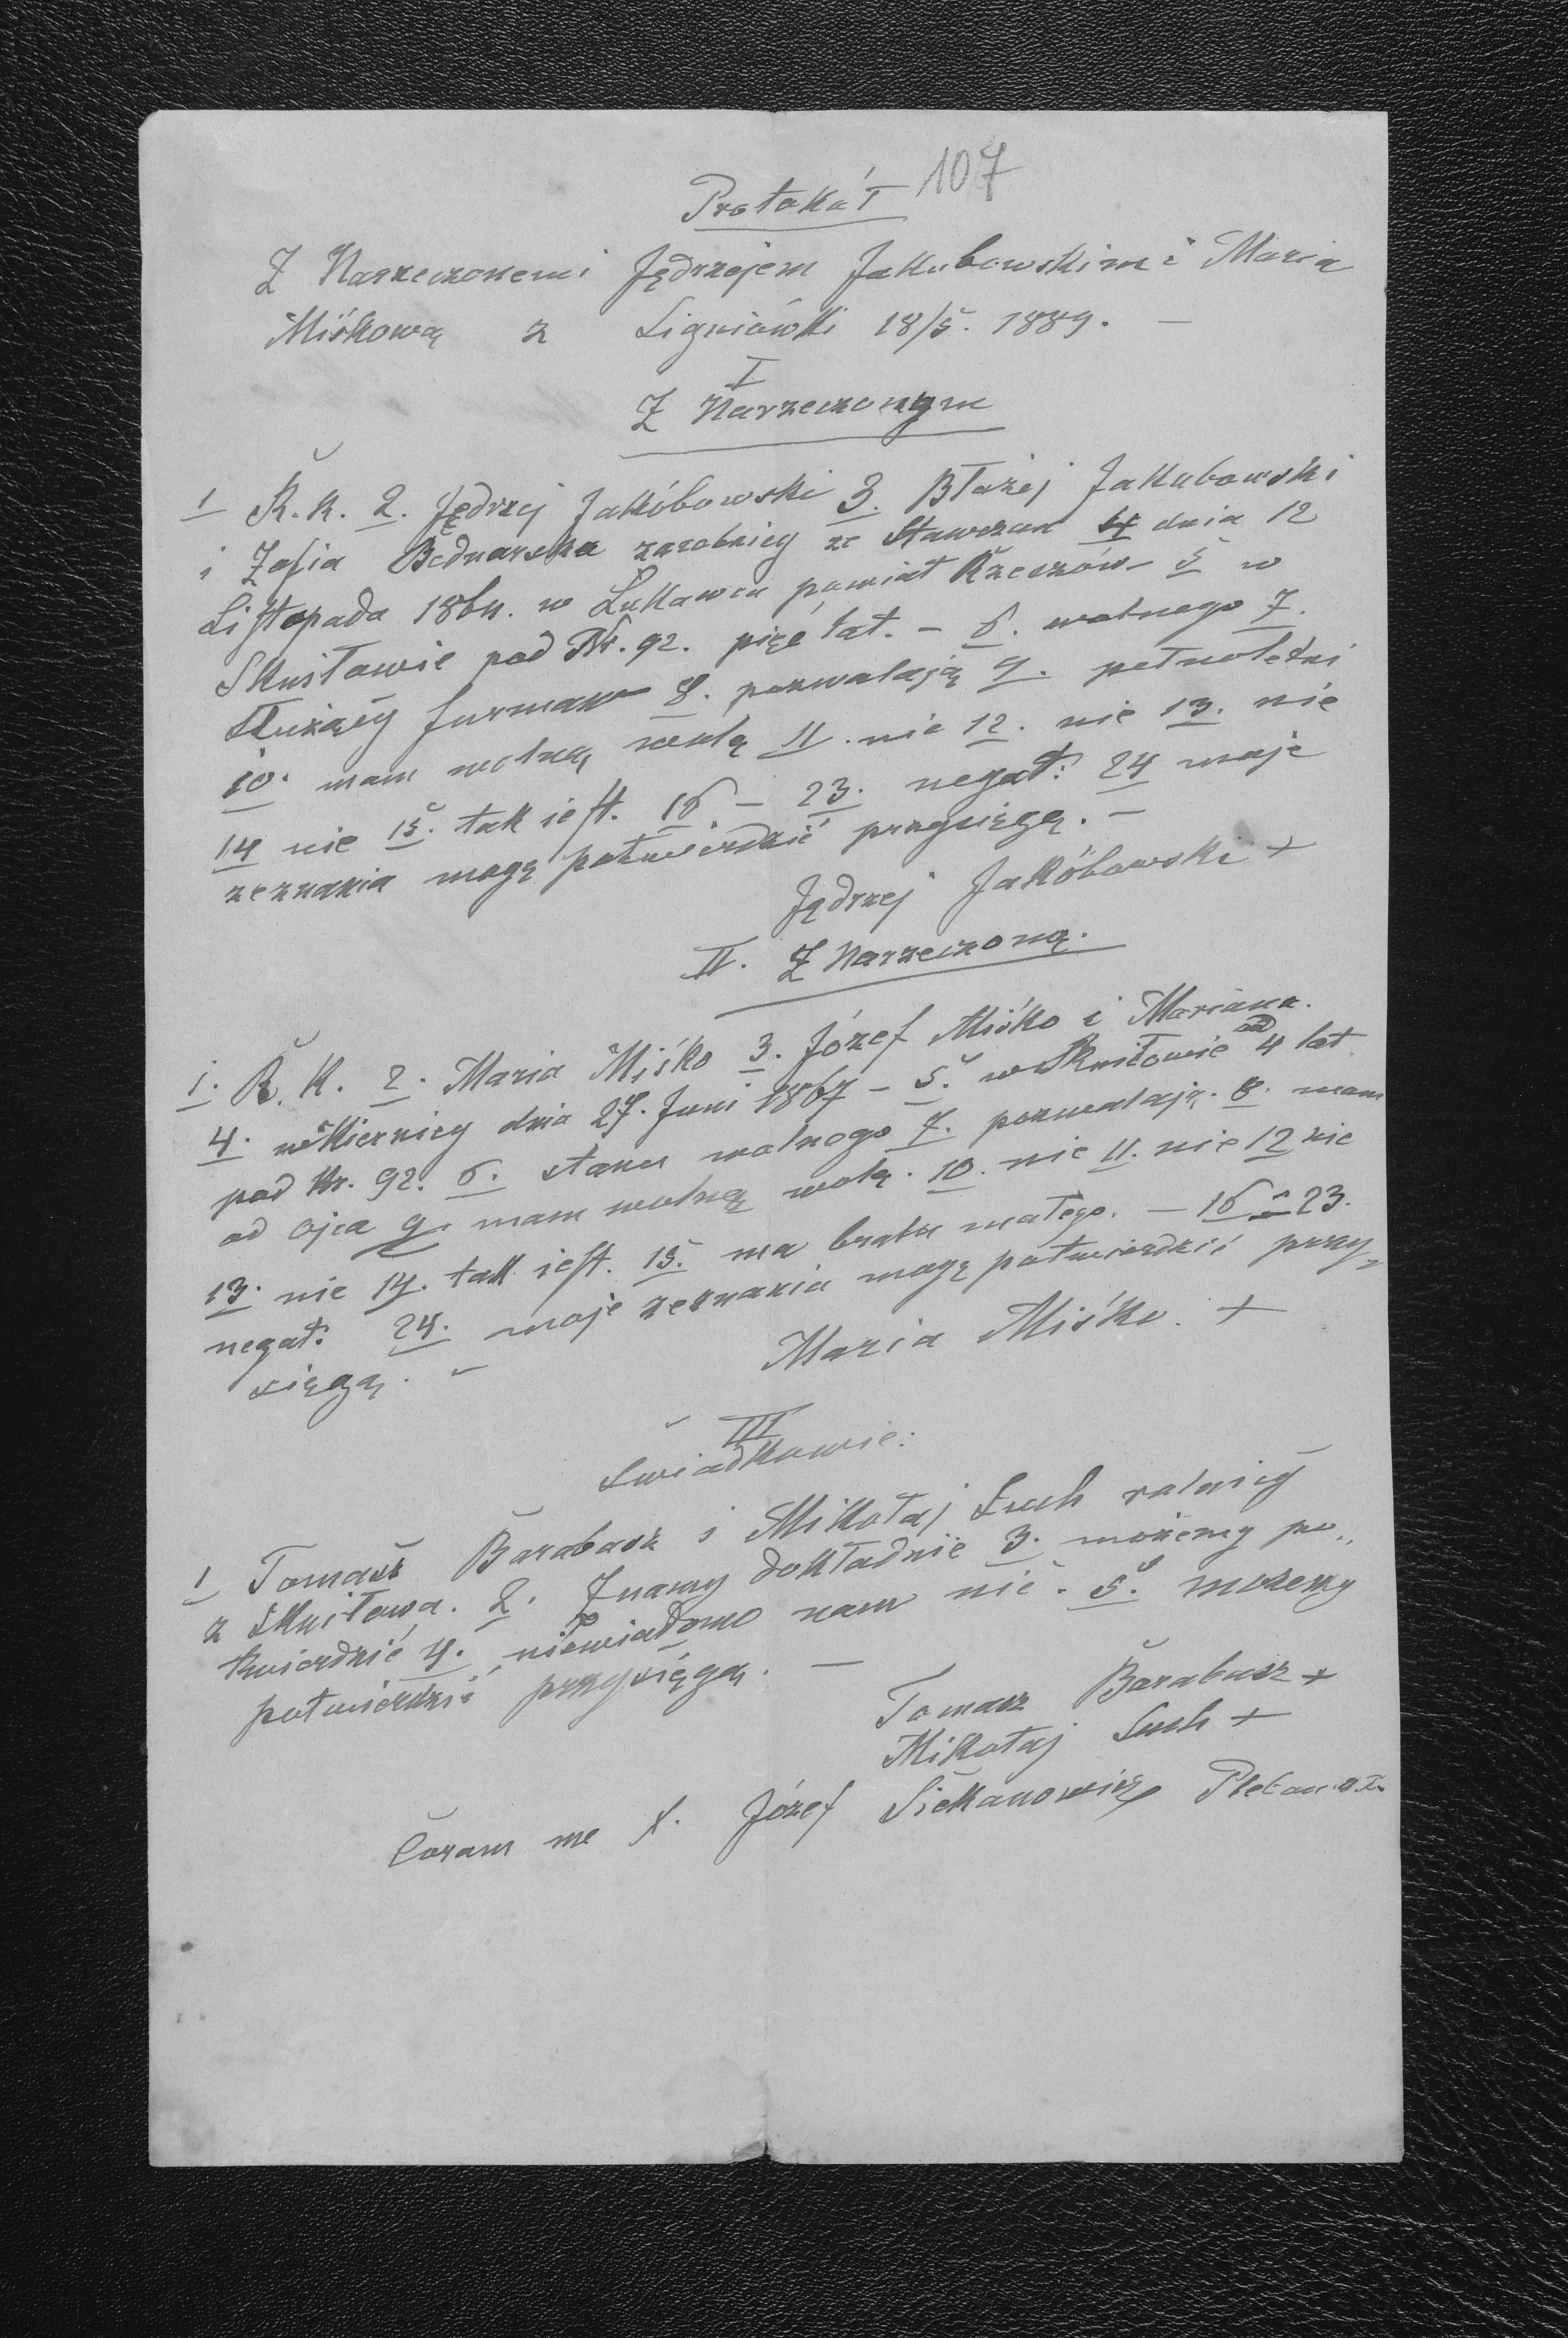 107
Protokół
Z Narzeczonemi Jędrzejem Jakubowskim i Marią
Miśkową z Signiówki 18/5. 1889. —
I
Z Narzeczonym
1 R. K. 2. Jędrzej Jakóbowski 3. Błażej Jakubowski
i Zofia Bednarska zarobnicy ze Stawczan 4 dnia 12
Listopada 1864. w Łukawcu powiat Rzeszów 5 w
Skniłowie pod Nr. 92. pięć lat. — 6. wolnego 7.
służący furman 8. pozwalają 9. pełnoletni
10. mam wolną wolę 11. nie 12. nie 13. nie
14 nie 15. tak jest. 16 — 23. negat: 24 moje
zeznania mogę potwierdzić przysięgą. —
Jędrzej Jakóbowski +
II. Z Narzeczoną.
1. R. K. 2. Maria Miśko 3. Józef Miśko i Marianna.
4. w Kiernicy dnia 27. Juni 1867 — 5. w Skniłowie od 4 lat
pod Nr. 92. 6. stanu wolnego 7. pozwalają. 8. mam
od ojca 9. mam wolną wolę. 10. nie 11. nie 12 nie
13. nie 14. tak jest. 15. ma brata małego. — 16 — 23.
negat: 24. moje zeznania mogę potwierdzić przy-
sięgą. —
Maria Miśko. +
III
Świadkowie:
1 Tomasz Barabasz i Mikołaj Such rolnicy
z Skniłowa. 2. Znamy dokładnie 3. możemy po-
twierdzić 4. niewiadomo nam nic. 5. możemy
potwierdzić przysięgą. —
Tomasz Barabasz +
Mikołaj Such +
Coram me X. Józef Pleban